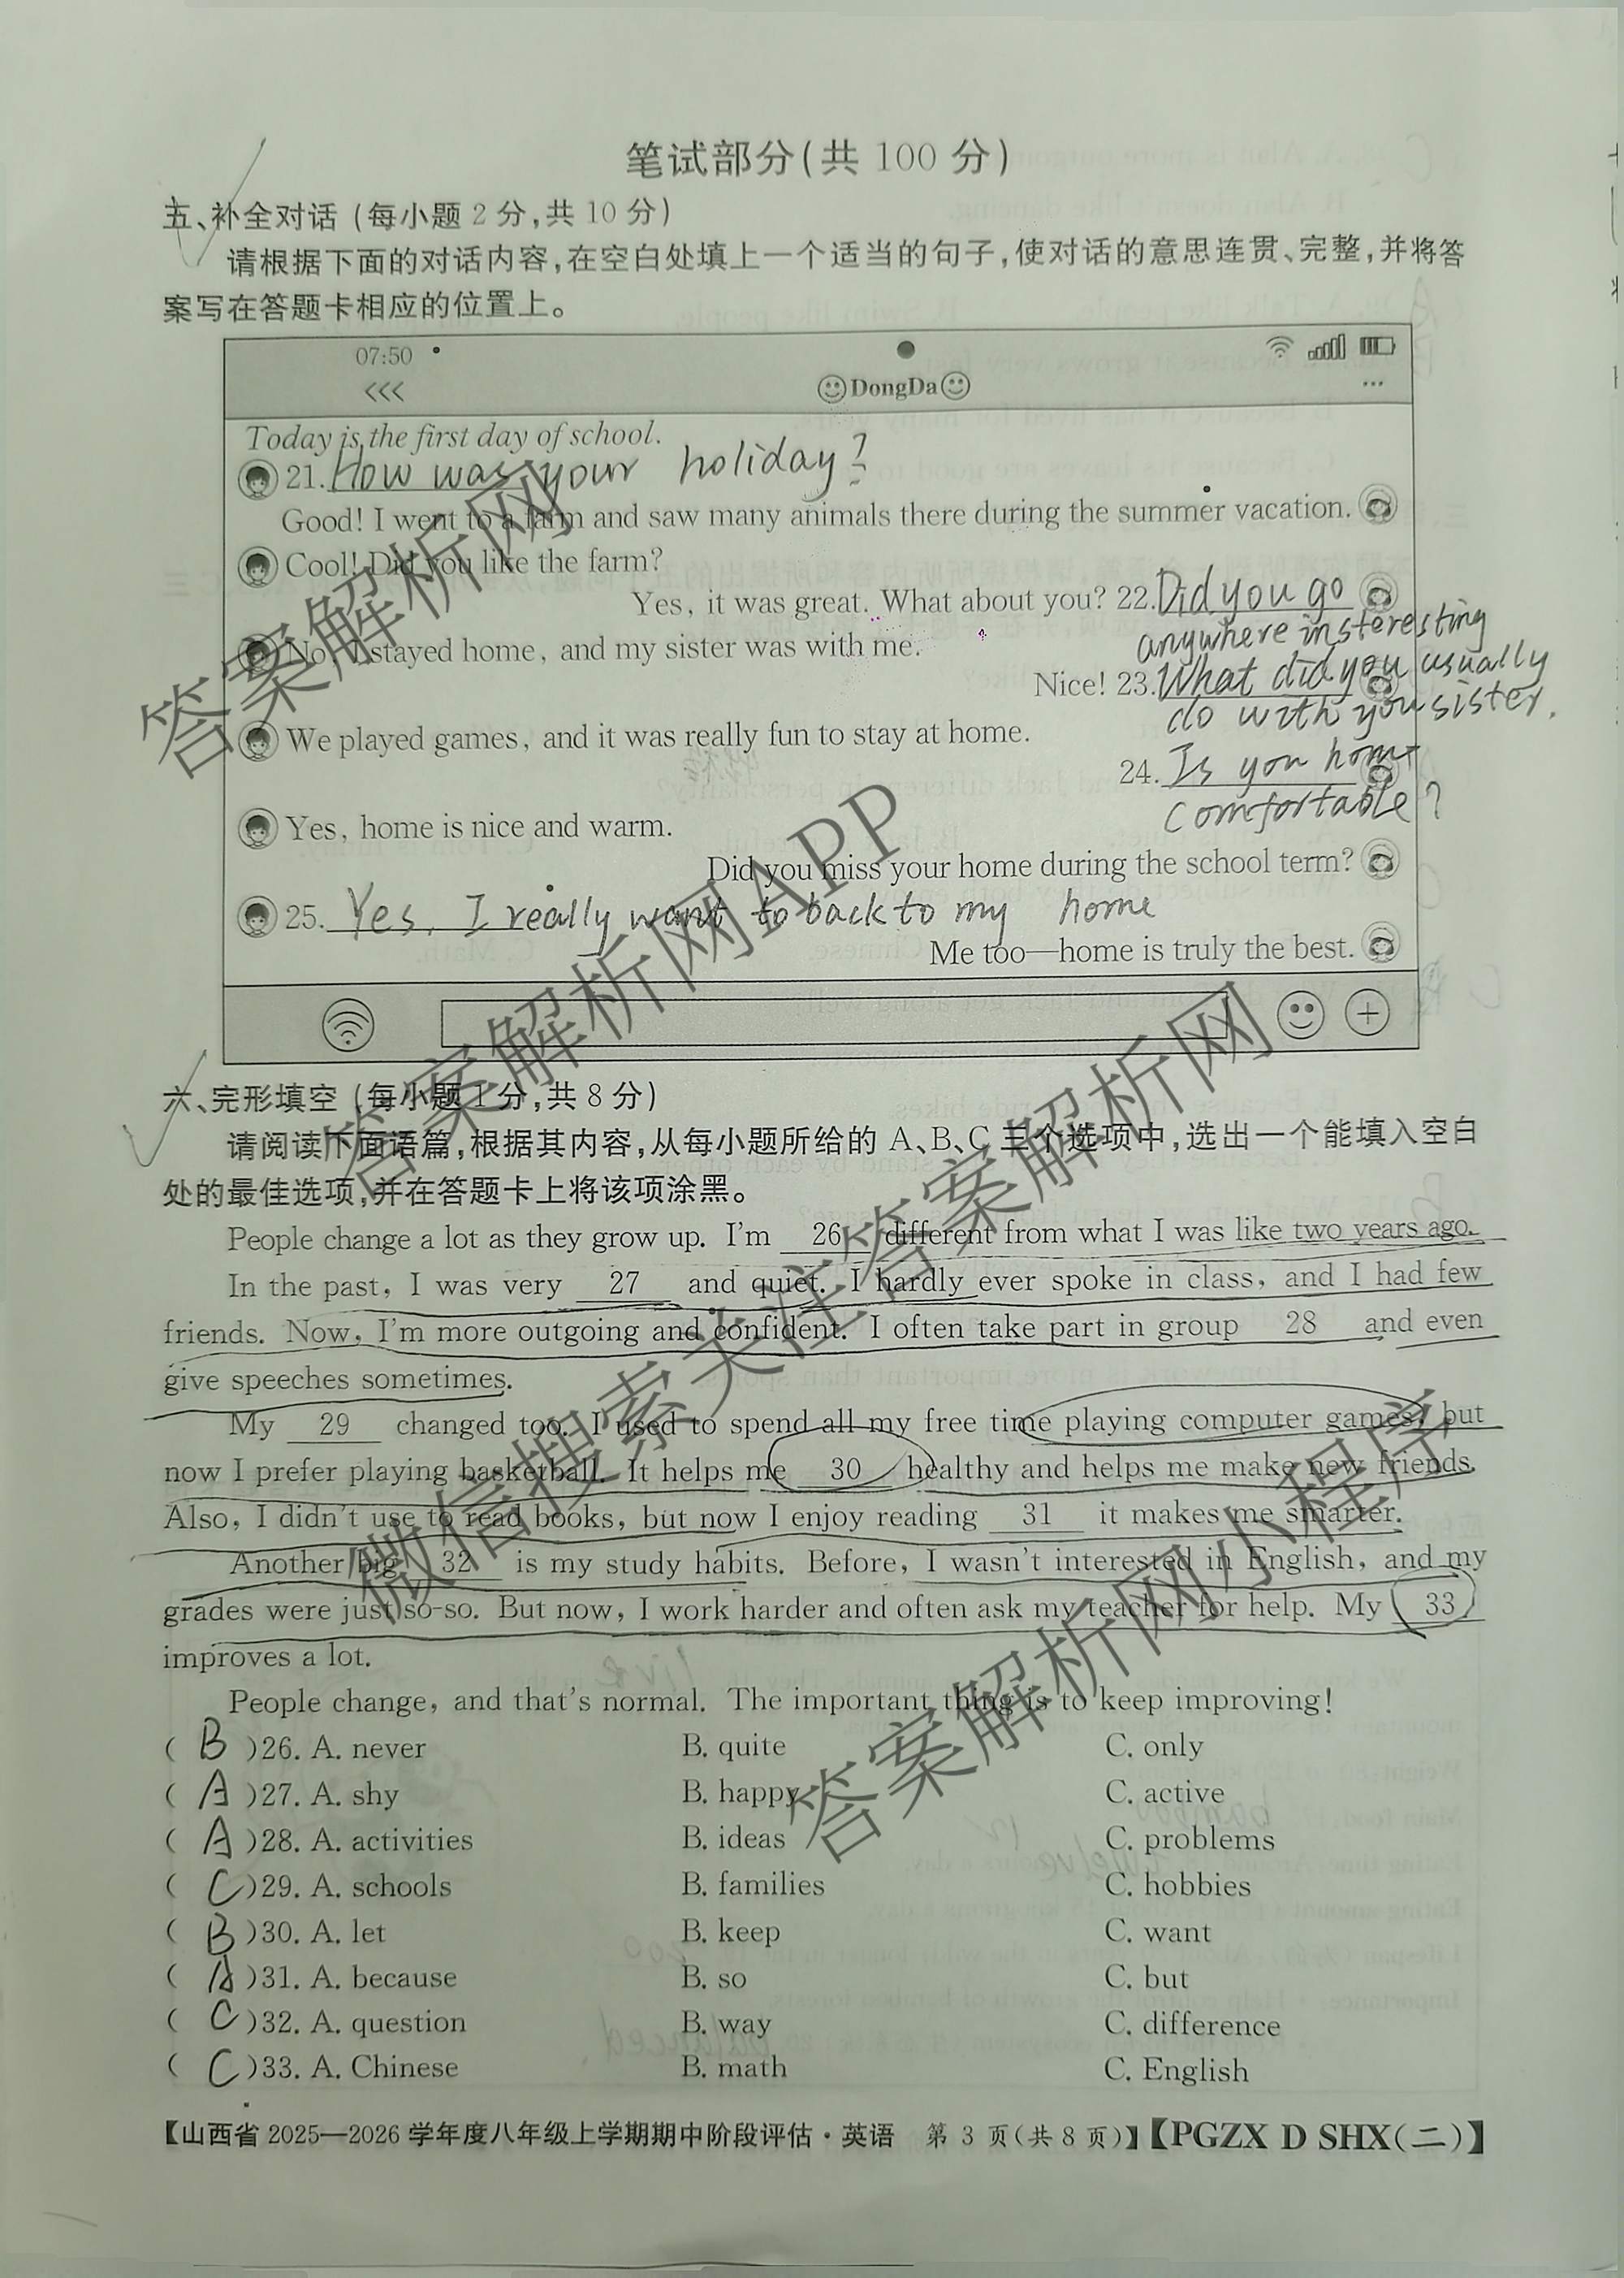 笔试部分(共 100 分)
五、补全对话 (每小题 2 分,共 10 分)
请根据下面的对话内容,在空白处填上一个适当的句子,使对话的意思连贯、完整,并将答
案写在答题卡相应的位置上。
07:50
<<<
DongDa
...
Today is the first day of school.
21. How was your holiday?
Good! I went to a farm and saw many animals there during the summer vacation.
Cool! Did you like the farm?
Yes, it was great. What about you? 22. Did you go
anywhere insteresting
No, I stayed home, and my sister was with me.
Nice! 23. What did you usually
do with you sister.
We played games, and it was really fun to stay at home.
24. Is you home
comfortable?
Yes, home is nice and warm.
Did you miss your home during the school term?
25. Yes, I really want to back to my home
Me too—home is truly the best.
六、完形填空 (每小题 1 分,共 8 分)
请阅读下面语篇,根据其内容,从每小题所给的 A、B、C 三个选项中,选出一个能填入空白
处的最佳选项,并在答题卡上将该项涂黑。
People change a lot as they grow up. I'm 26 different from what I was like two years ago.
In the past, I was very 27 and quiet. I hardly ever spoke in class, and I had few
friends. Now, I'm more outgoing and confident. I often take part in group 28 and even
give speeches sometimes.
My 29 changed too. I used to spend all my free time playing computer games, but
now I prefer playing basketball. It helps me 30 healthy and helps me make new friends.
Also, I didn't use to read books, but now I enjoy reading 31 it makes me smarter.
Another big 32 is my study habits. Before, I wasn't interested in English, and my
grades were just so-so. But now, I work harder and often ask my teacher for help. My 33
improves a lot.
People change, and that's normal. The important thing is to keep improving!
( B )26. A. never B. quite C. only
( A )27. A. shy B. happy C. active
( A )28. A. activities B. ideas C. problems
( C )29. A. schools B. families C. hobbies
( B )30. A. let B. keep C. want
( A )31. A. because B. so C. but
( C )32. A. question B. way C. difference
( C )33. A. Chinese B. math C. English
【山西省 2025—2026 学年度八年级上学期期中阶段评估·英语 第 3 页(共 8 页)】【PGZX D SHX(二)】
答案解析网
答案解析网APP
微信搜索关注答案解析网
答案解析网小程序